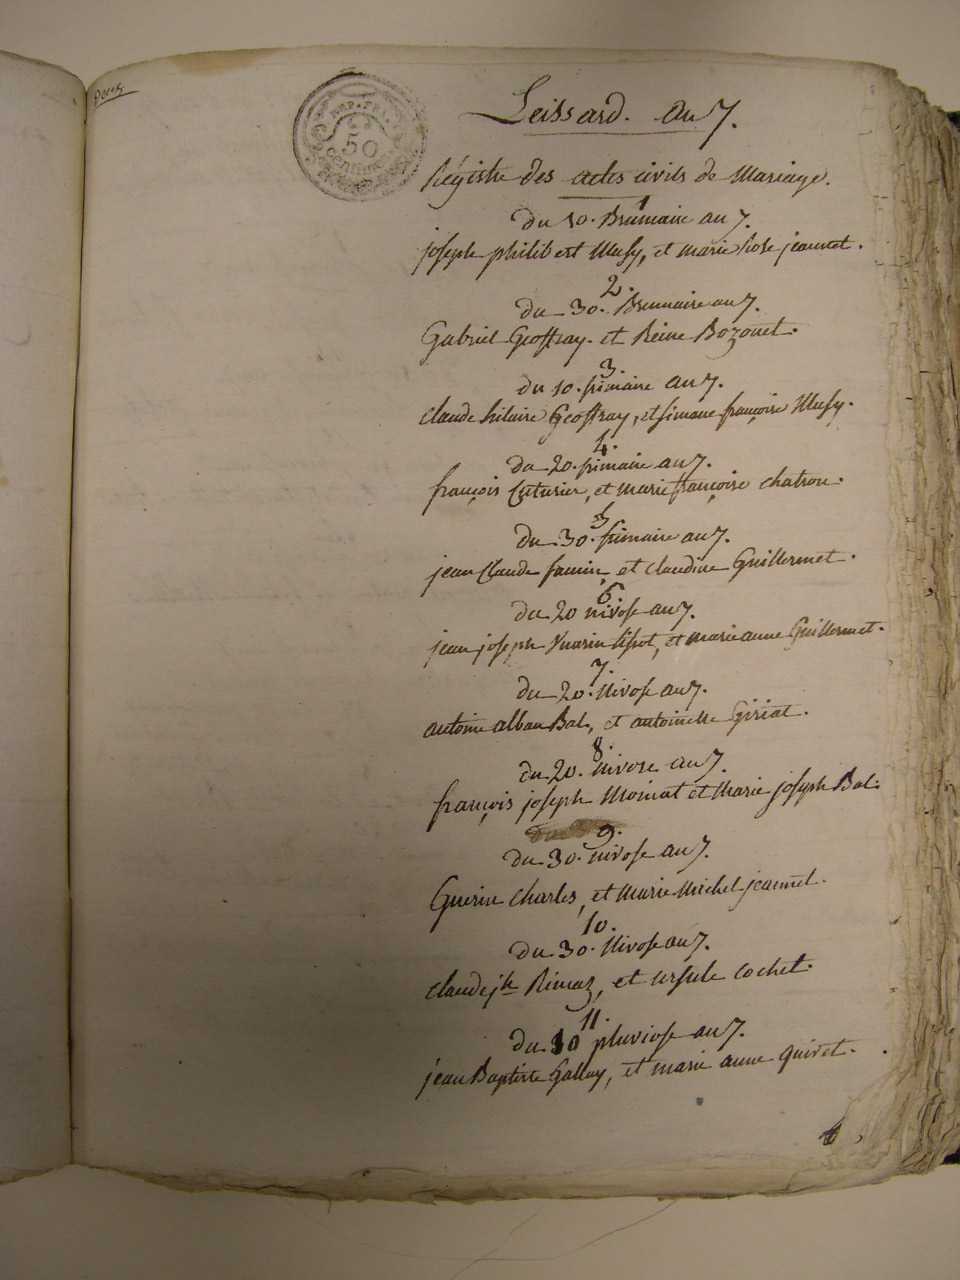 REP. FRA.
50
centimes
Leissard. an 7.
Régistre des actes civils de Mariage.
1
du 10. Brumaire an 7.
joseph philibert Musy, et marie Rose jeannet.
2.
du 30. Brumaire an 7.
Gabriel Geoffray. et Reine Bozonet.
3.
du 10. frimaire an 7.
claude hilaire Geoffray, et simone françoise Musy.
4.
du 20. frimaire an 7.
françois Cuturier, et marie françoise chatron.
5
du 30. frimaire an 7.
jean Claude famin, et claudine Guillermet.
6.
du 20 nivose an 7.
jean joseph tissot, et marie anne Guillermet.
7.
du 20. Nivose an 7.
antoine alban Bal, et antoinette Giriat.
8.
du 20. nivose an 7.
françois joseph Moinat et Marie joseph Bal.
9.
du 30. nivose an 7.
Guerin Charles, et Marie Michel jeannet.
10.
du 30. Nivose an 7.
claude jh Rimaz, et ursule cochet.
11.
du 10 pluviose an 7.
jean Baptiste Gallay, et marie anne quinet.